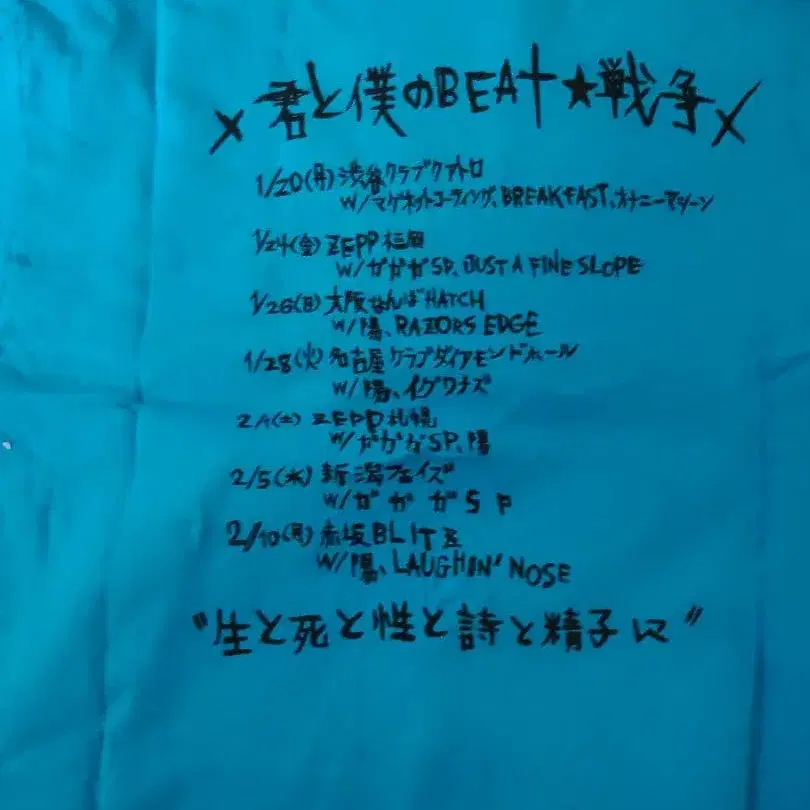 ×君と僕のBEAT★戦争×
1/20(月)渋谷クラブクアトロ
W/マグネットコーティング、BREAKFAST、オナニーマシーン
1/24(金)ZEPP福岡
W/ガガガSP、JUST A FINE SLOPE
1/26(日)大阪なんばHATCH
W/陽、RAZORS EDGE
1/28(火)名古屋クラブダイアモンドホール
W/陽、イグワナズ
2/1(土)ZEPP札幌
W/ガガガSP、陽
2/5(水)新潟フェイズ
W/ガガガSP
2/10(月)赤坂BLITZ
W/陽、LAUGHIN' NOSE
"生と死と性と詩と精子に"